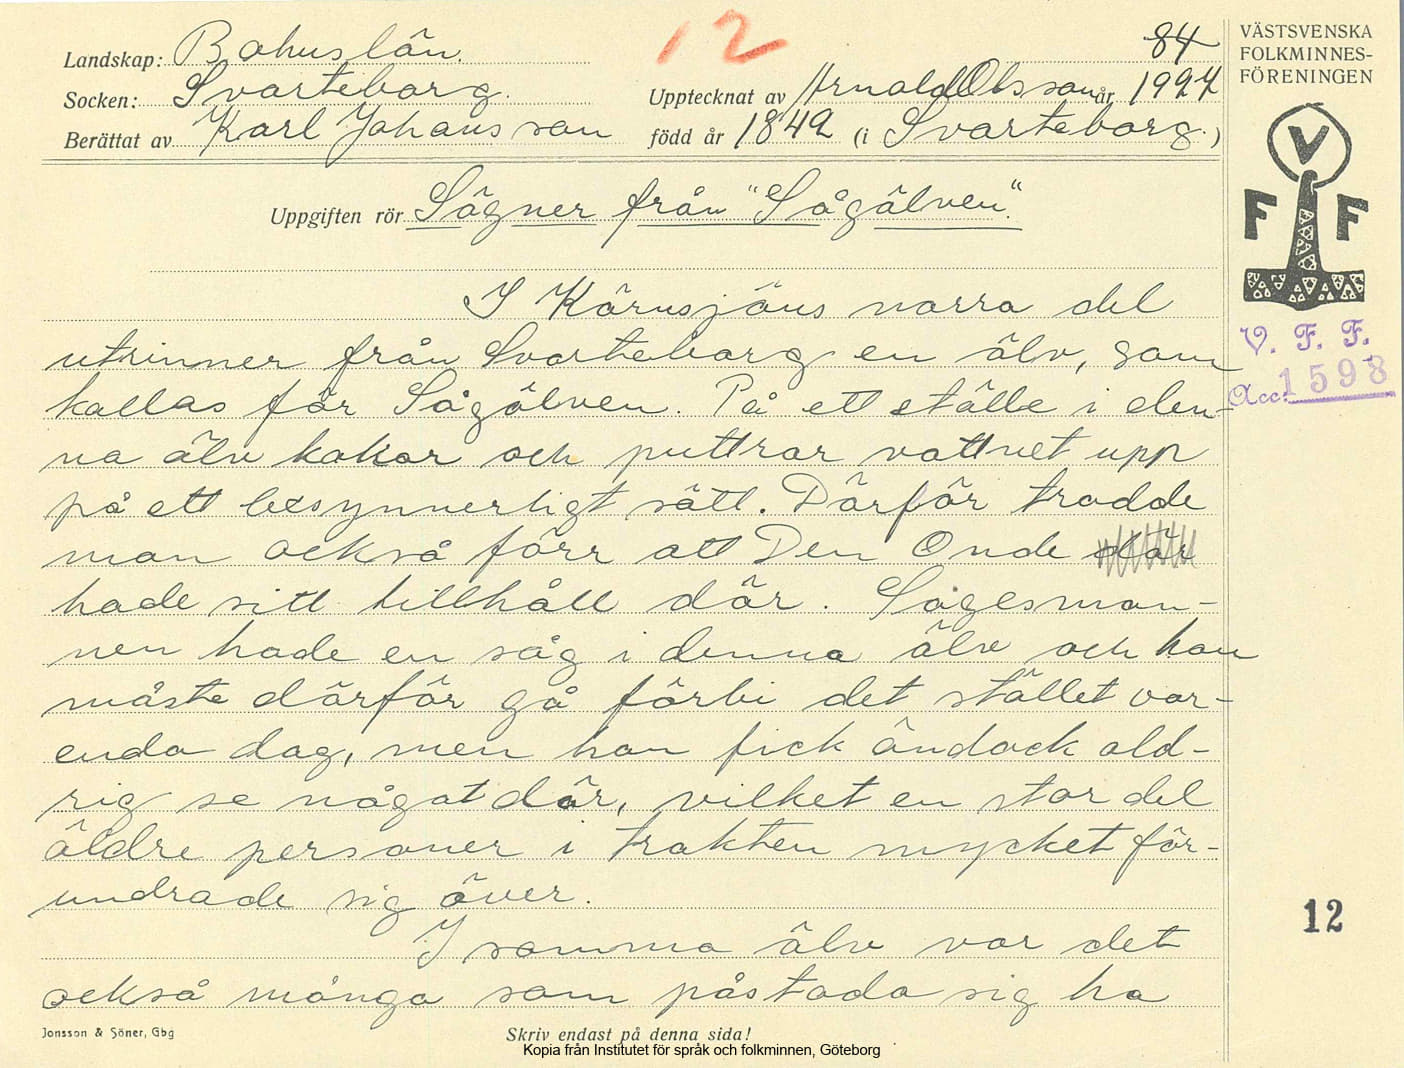 12
84
Landskap: Bohuslän.
Socken: Svarteborg. Upptecknat av Arnold Olsson år 1927
Berättat av Karl Johansson född år 1842 (i Svarteborg.)
Uppgiften rör Sägner från "Sågälven".
I Kärnsjöns norra del
utrinner från Svarteborg en älv, som
kallas för Sågälven. På ett ställe i den-
na älv kokar och puttrar vattnet upp
på ett besynnerligt sätt. Därför trodde
man också förr att Den Onde där
hade sitt tillhåll där. Sagesman-
nen hade en såg i denna älv och han
måste därför gå förbi det stället var-
enda dag, men han fick ändock ald-
rig se något där, vilket en stor del
äldre personer i trakten mycket för-
undrade sig över.
I samma älv var det
också många som påstodo sig ha
Jonsson & Söner, Gbg
Skriv endast på denna sida!
Kopia från Institutet för språk och folkminnen, Göteborg
VÄSTSVENSKA
FOLKMINNES-
FÖRENINGEN
V
F F
V. F. F.
Acc. 1598
12